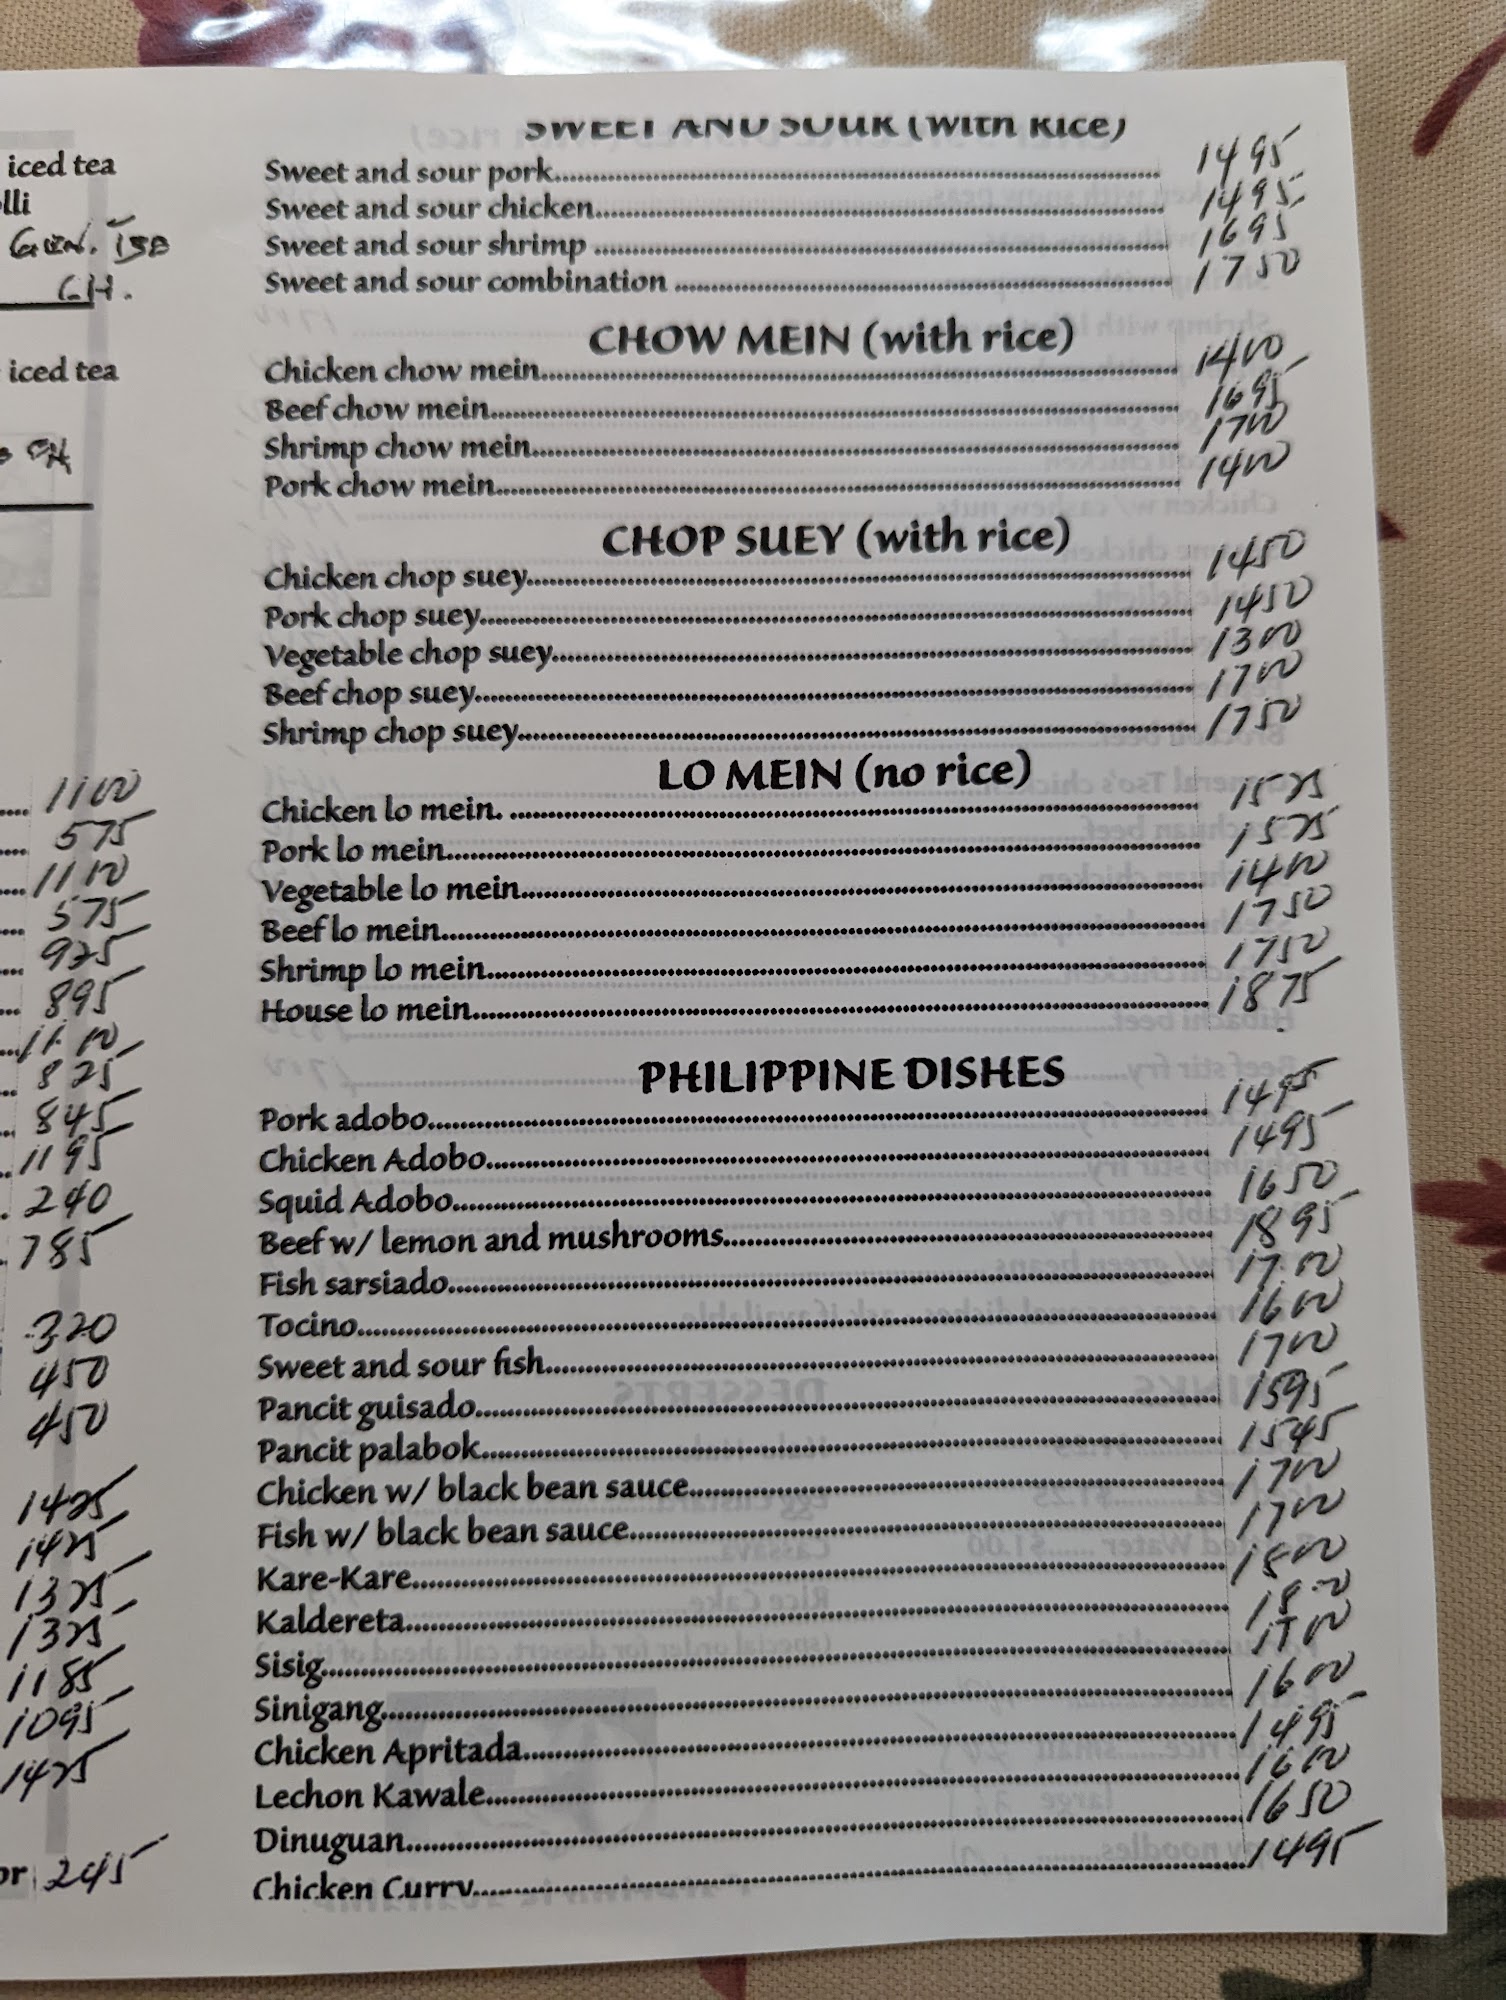 iced tea
olli
GEN. TSO
CH.
iced tea
CH
1100
575
1100
575
925
895
1100
825
845
1195
240
785
320
450
450
1425
1425
1325
1325
1185
1095
1425
or 245
SWEET AND SOUR (with Rice)
Sweet and sour pork 1495
Sweet and sour chicken 1495
Sweet and sour shrimp 1695
Sweet and sour combination 1750
CHOW MEIN (with rice)
Chicken chow mein 1400
Beef chow mein 1695
Shrimp chow mein 1700
Pork chow mein 1400
CHOP SUEY (with rice)
Chicken chop suey 1450
Pork chop suey 1450
Vegetable chop suey 1300
Beef chop suey 1700
Shrimp chop suey 1750
LO MEIN (no rice)
Chicken lo mein. 1525
Pork lo mein 1525
Vegetable lo mein 1400
Beef lo mein 1750
Shrimp lo mein 1750
House lo mein 1875
PHILIPPINE DISHES
Pork adobo 1495
Chicken Adobo 1495
Squid Adobo 1650
Beef w/ lemon and mushrooms 1895
Fish sarsiado 1700
Tocino 1600
Sweet and sour fish 1700
Pancit guisado 1595
Pancit palabok 1545
Chicken w/ black bean sauce 1700
Fish w/ black bean sauce 1700
Kare-Kare 1800
Kaldereta 1800
Sisig 1700
Sinigang 1600
Chicken Apritada 1495
Lechon Kawale 1600
Dinuguan 1650
Chicken Curry 1495